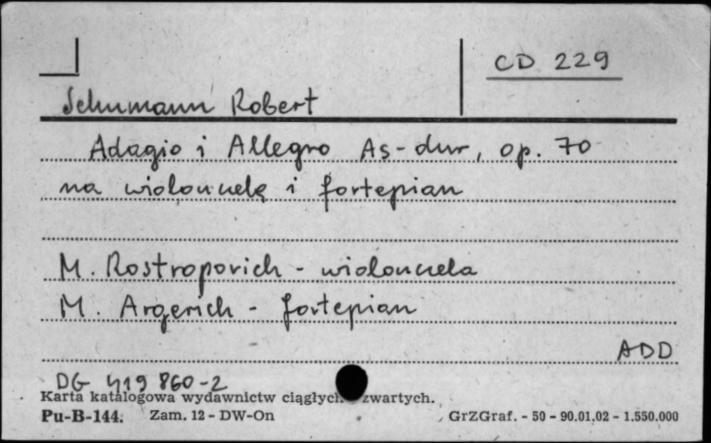 CD 229
Schumann Robert
Adagio i Allegro As-dur, op. 70
na wiolonczelę i fortepian
M. Rostropovich - wiolonczela
M. Argerich - fortepian
ADD
DG 419 860-2
Karta katalogowa wydawnictw ciągłych zwartych.
Pu-B-144. Zam. 12 - DW-On GrZGraf. - 50 - 90.01.02 - 1.550.000